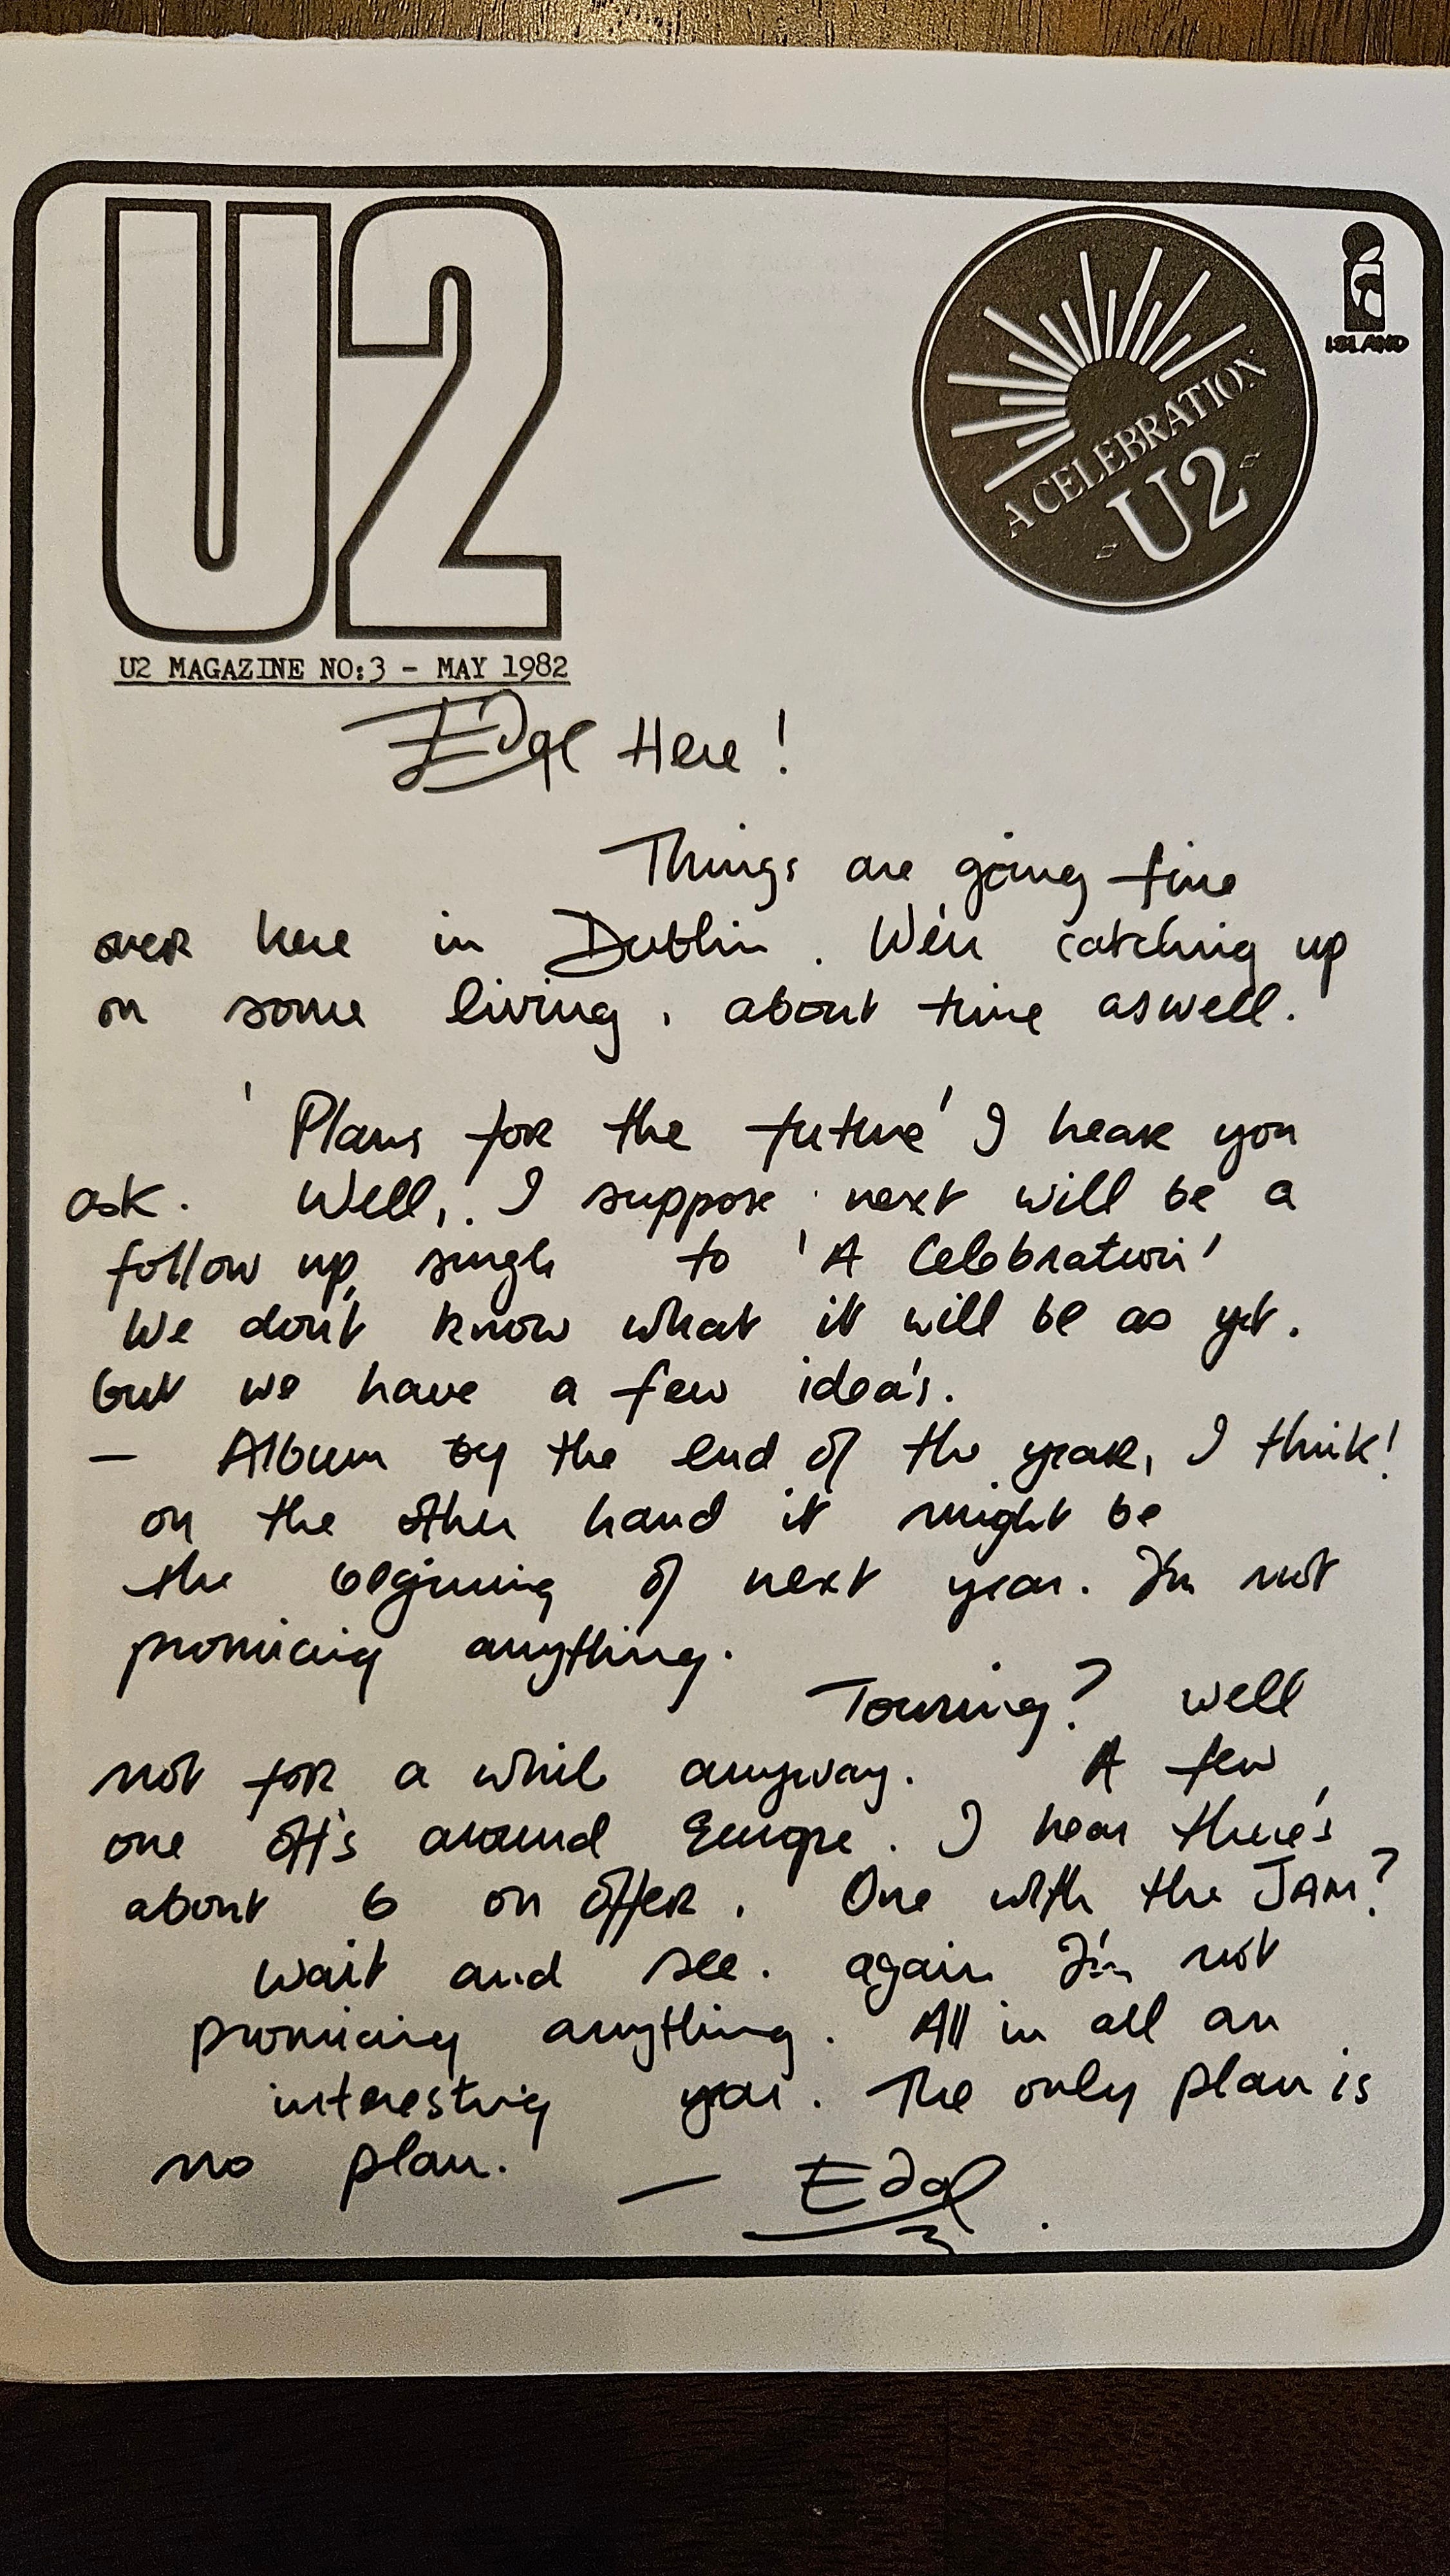 U2
ISLAND
A CELEBRATION
U2
U2 MAGAZINE NO:3 - MAY 1982
Edge Here!
Things are going fine
over here in Dublin. We're catching up
on some living, about time aswell.
'Plans for the future' I hear you
ask. Well, I suppose next will be a
follow up single to 'A Celebration'
We don't know what it will be as yet.
but we have a few idea's.
- Album by the end of the year, I think!
on the other hand it might be
the beginning of next year. I'm not
promicing anything.
Touring? well
not for a while anyway. A few
one off's around Europe. I hear there's
about 6 on offer. One with the JAM?
wait and see. again I'm not
promicing anything. All in all an
interesting year. The only plan is
no plan.
- Edge